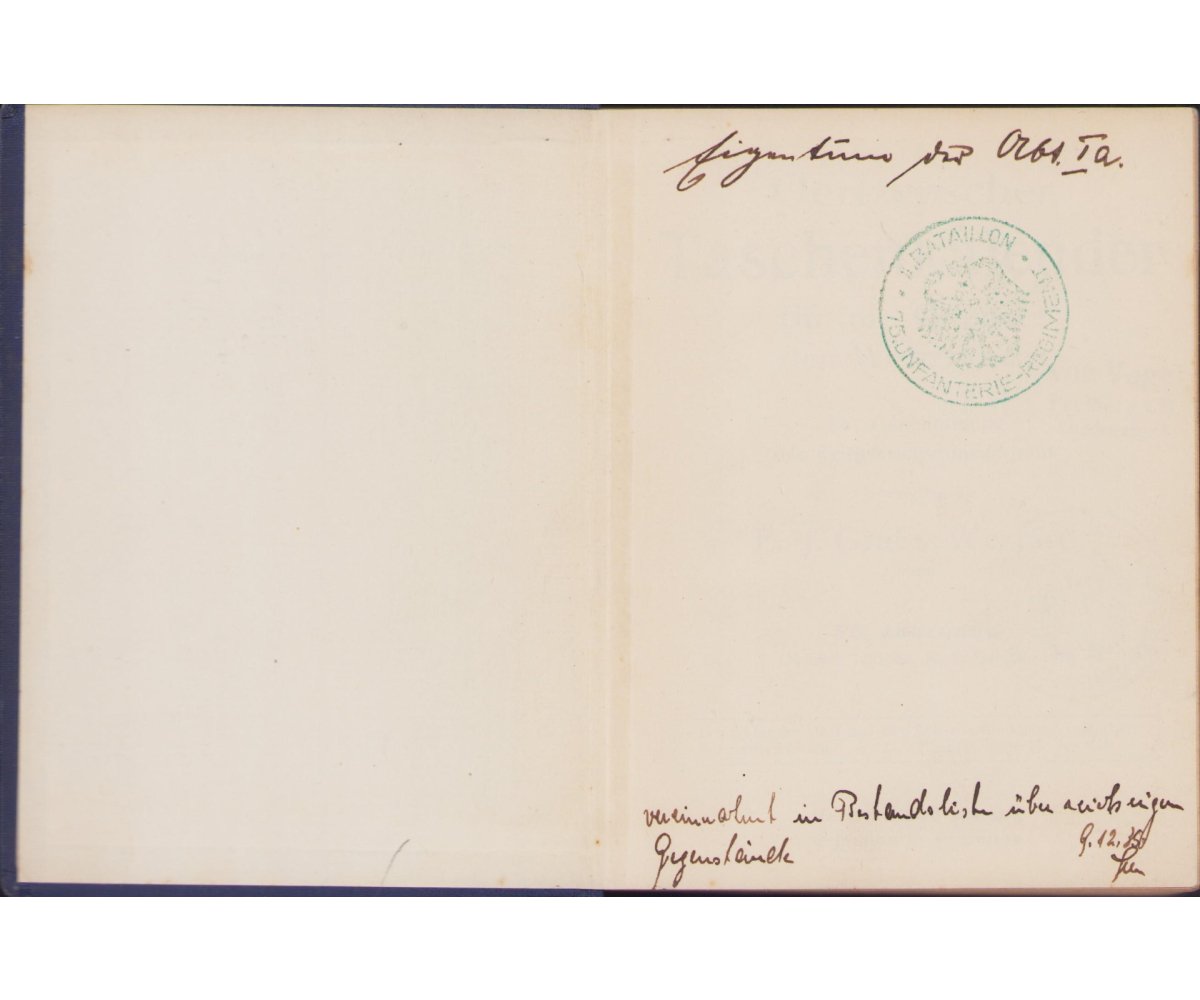 Eigentum der Abt. Ia.
II. BATAILLON
75. JNFANTERIE-REGIMENT
vereinnahmt in Bestandsliste über reichseigen
Gegenstände
9.12.35